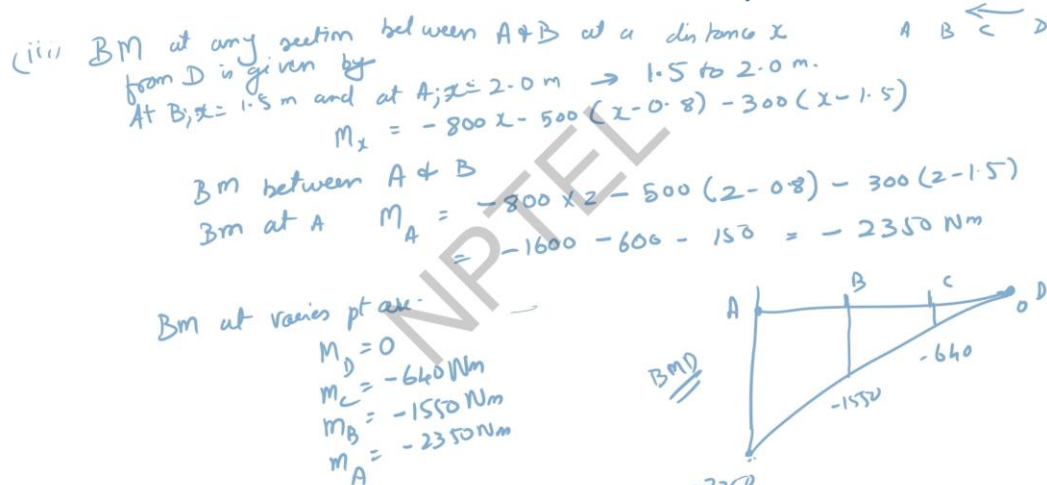 (iii) BM at any section between A & B at a distance x
from D is given by
A B C D
At B; x = 1.5 m and at A; x = 2.0 m → 1.5 to 2.0 m.
Mx = - 800 x - 500 (x - 0.8) - 300 (x - 1.5)
BM between A & B
Bm at A MA = - 800 x 2 - 500 (2 - 0.8) - 300 (2 - 1.5)
= - 1600 - 600 - 150 = - 2350 Nm
Bm at varies pt are.
MD = 0
mC = - 640 Nm
mB = - 1550 Nm
mA = - 2350 Nm
A B C D
0
-640
BMD
-1550
-2350
NPTEL